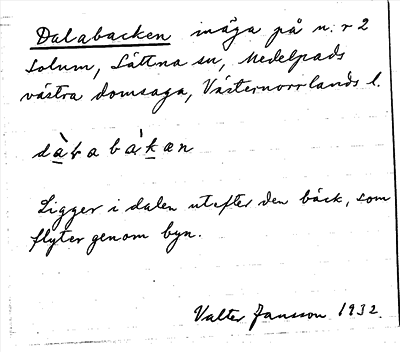 Dalabacken mäga på n:r 2
Solum, Sättna sn, Medelpads
västra domsaga, Västernorrlands l.
Ligger i dalen utefter den bäck, som
flyter genom byn.
Valter Jansson 1932.